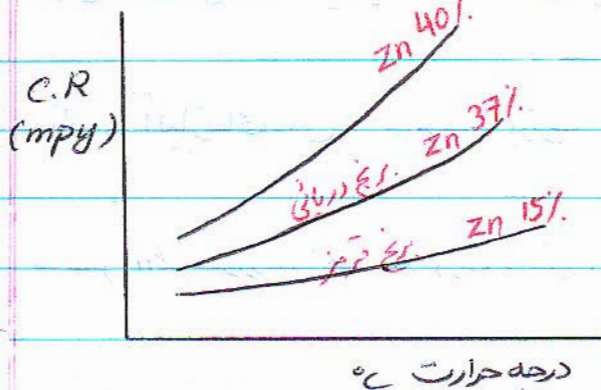 Zn 40%
C.R
(mpy)
Zn 37%
برنج دریائی
Zn 15%
برنج قرمز
درجه حرارت °C